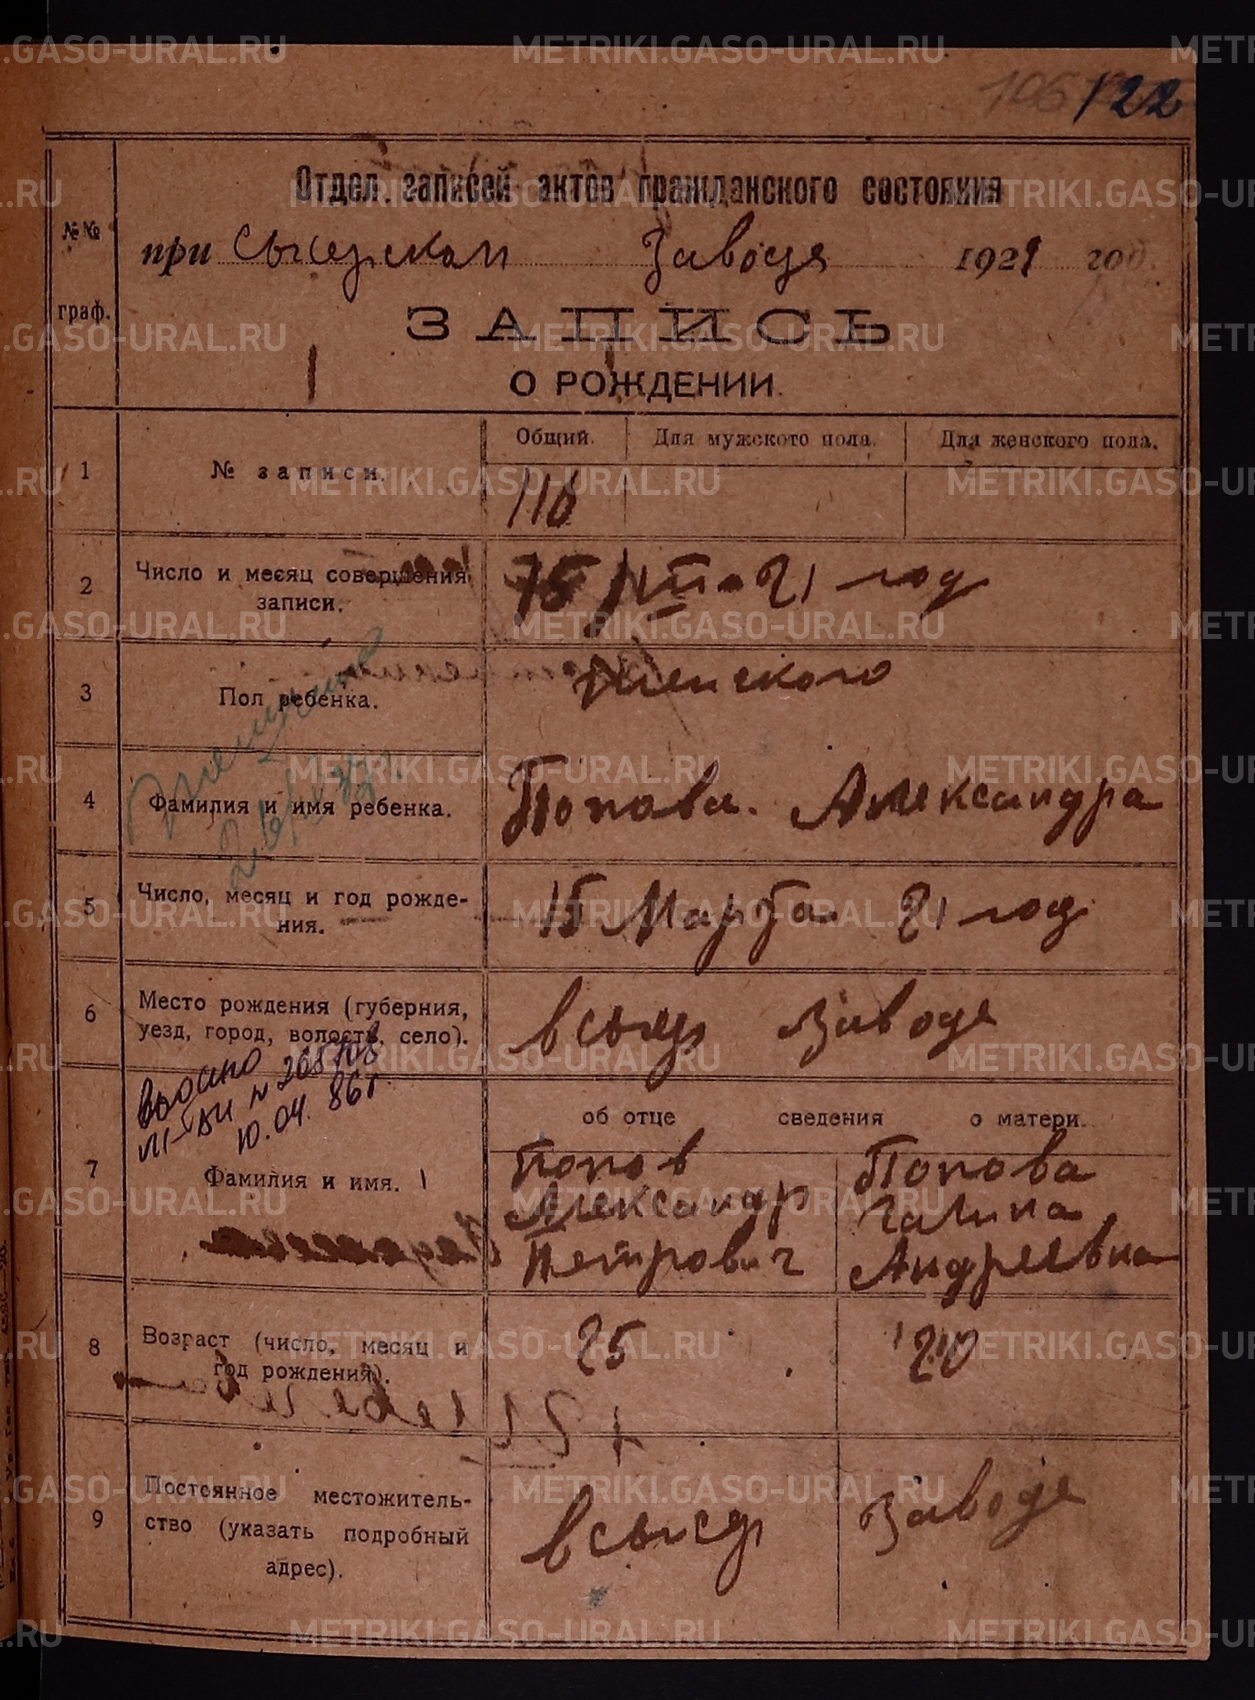 106 122
Отдел записей актов гражданского состояния
№№
граф.
при Сысерском Заводе 1921 год.
ЗАПИСЬ
О РОЖДЕНИИ.
1 № записи. Общий. Для мужского пола. Для женского пола.
116
2 Число и месяц совершения
записи.
21 год
3 Пол ребенка. Женского
4 Фамилия и имя ребенка. Попова. Александра
5 Число, месяц и год рожде-
ния. 15 Марта 21 год
6 Место рождения (губерния,
уезд, город, волость, село).
в Сысер Заводе
Выдано
10.04. 86 г
об отце сведения о матери.
7 Фамилия и имя.
Попов
Александр
Петрович
Попова
Галина
Андреевна
8 Возраст (число, месяц и
год рождения).
25 20
9 Постоянное местожитель-
ство (указать подробный
адрес).
в Сысер Заводе
METRIKI.GASO-URAL.RU